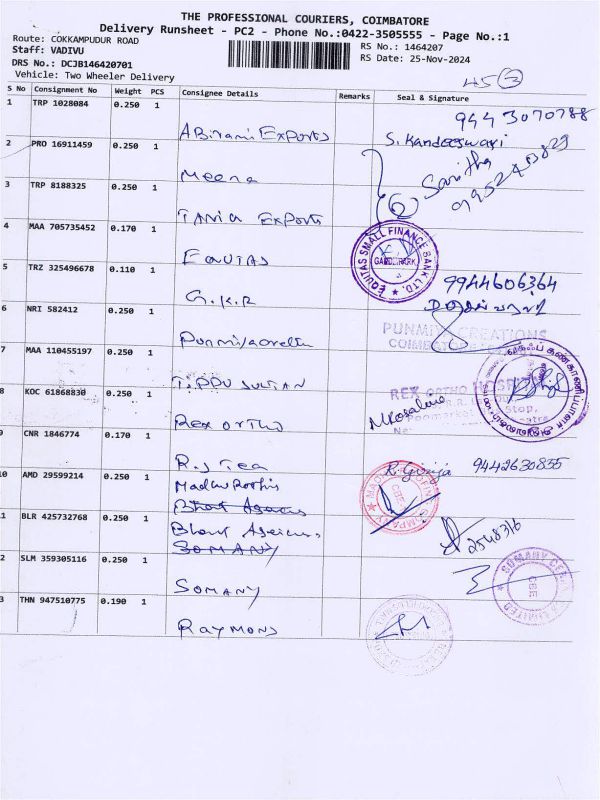 THE PROFESSIONAL COURIERS, COIMBATORE
Delivery Runsheet - PC2 - Phone No.:0422-3505555 - Page No.:1
Route: COKKAMPUDUR ROAD
RS No.: 1464207
Staff: VADIVU
RS Date: 25-Nov-2024
DRS No.: DCJB146420701
Vehicle: Two Wheeler Delivery
S No Consignment No Weight PCS Consignee Details Remarks Seal & Signature
1 TRP 1028084 0.250 1 ABirami Exports 9443070788
S. Kandeeswari
2 PRO 16911459 0.250 1 Meena Saritha
3 TRP 8188325 0.250 1 TANIA Exports
4 MAA 705735452 0.170 1 EQUITAS EQUITAS SMALL FINANCE BANK LTD.
5 TRZ 325496678 0.110 1 G.K.R 9944606364
6 NRI 582412 0.250 1 PUNMIYA CREATIONS
COIMBATORE
7 MAA 110455197 0.250 1 TIPPU SULTAN
8 KOC 61868830 0.250 1 Rex ORTHO REX ORTHO HOSPITAL
Stop,
9 CNR 1846774 0.170 1 R.S Tea R. Girija 9442630855
10 AMD 29599214 0.250 1
11 BLR 425732768 0.250 1 2548316
SOMANY
12 SLM 359305116 0.250 1 SOMANY
13 THN 947510775 0.190 1 RAYMONDS